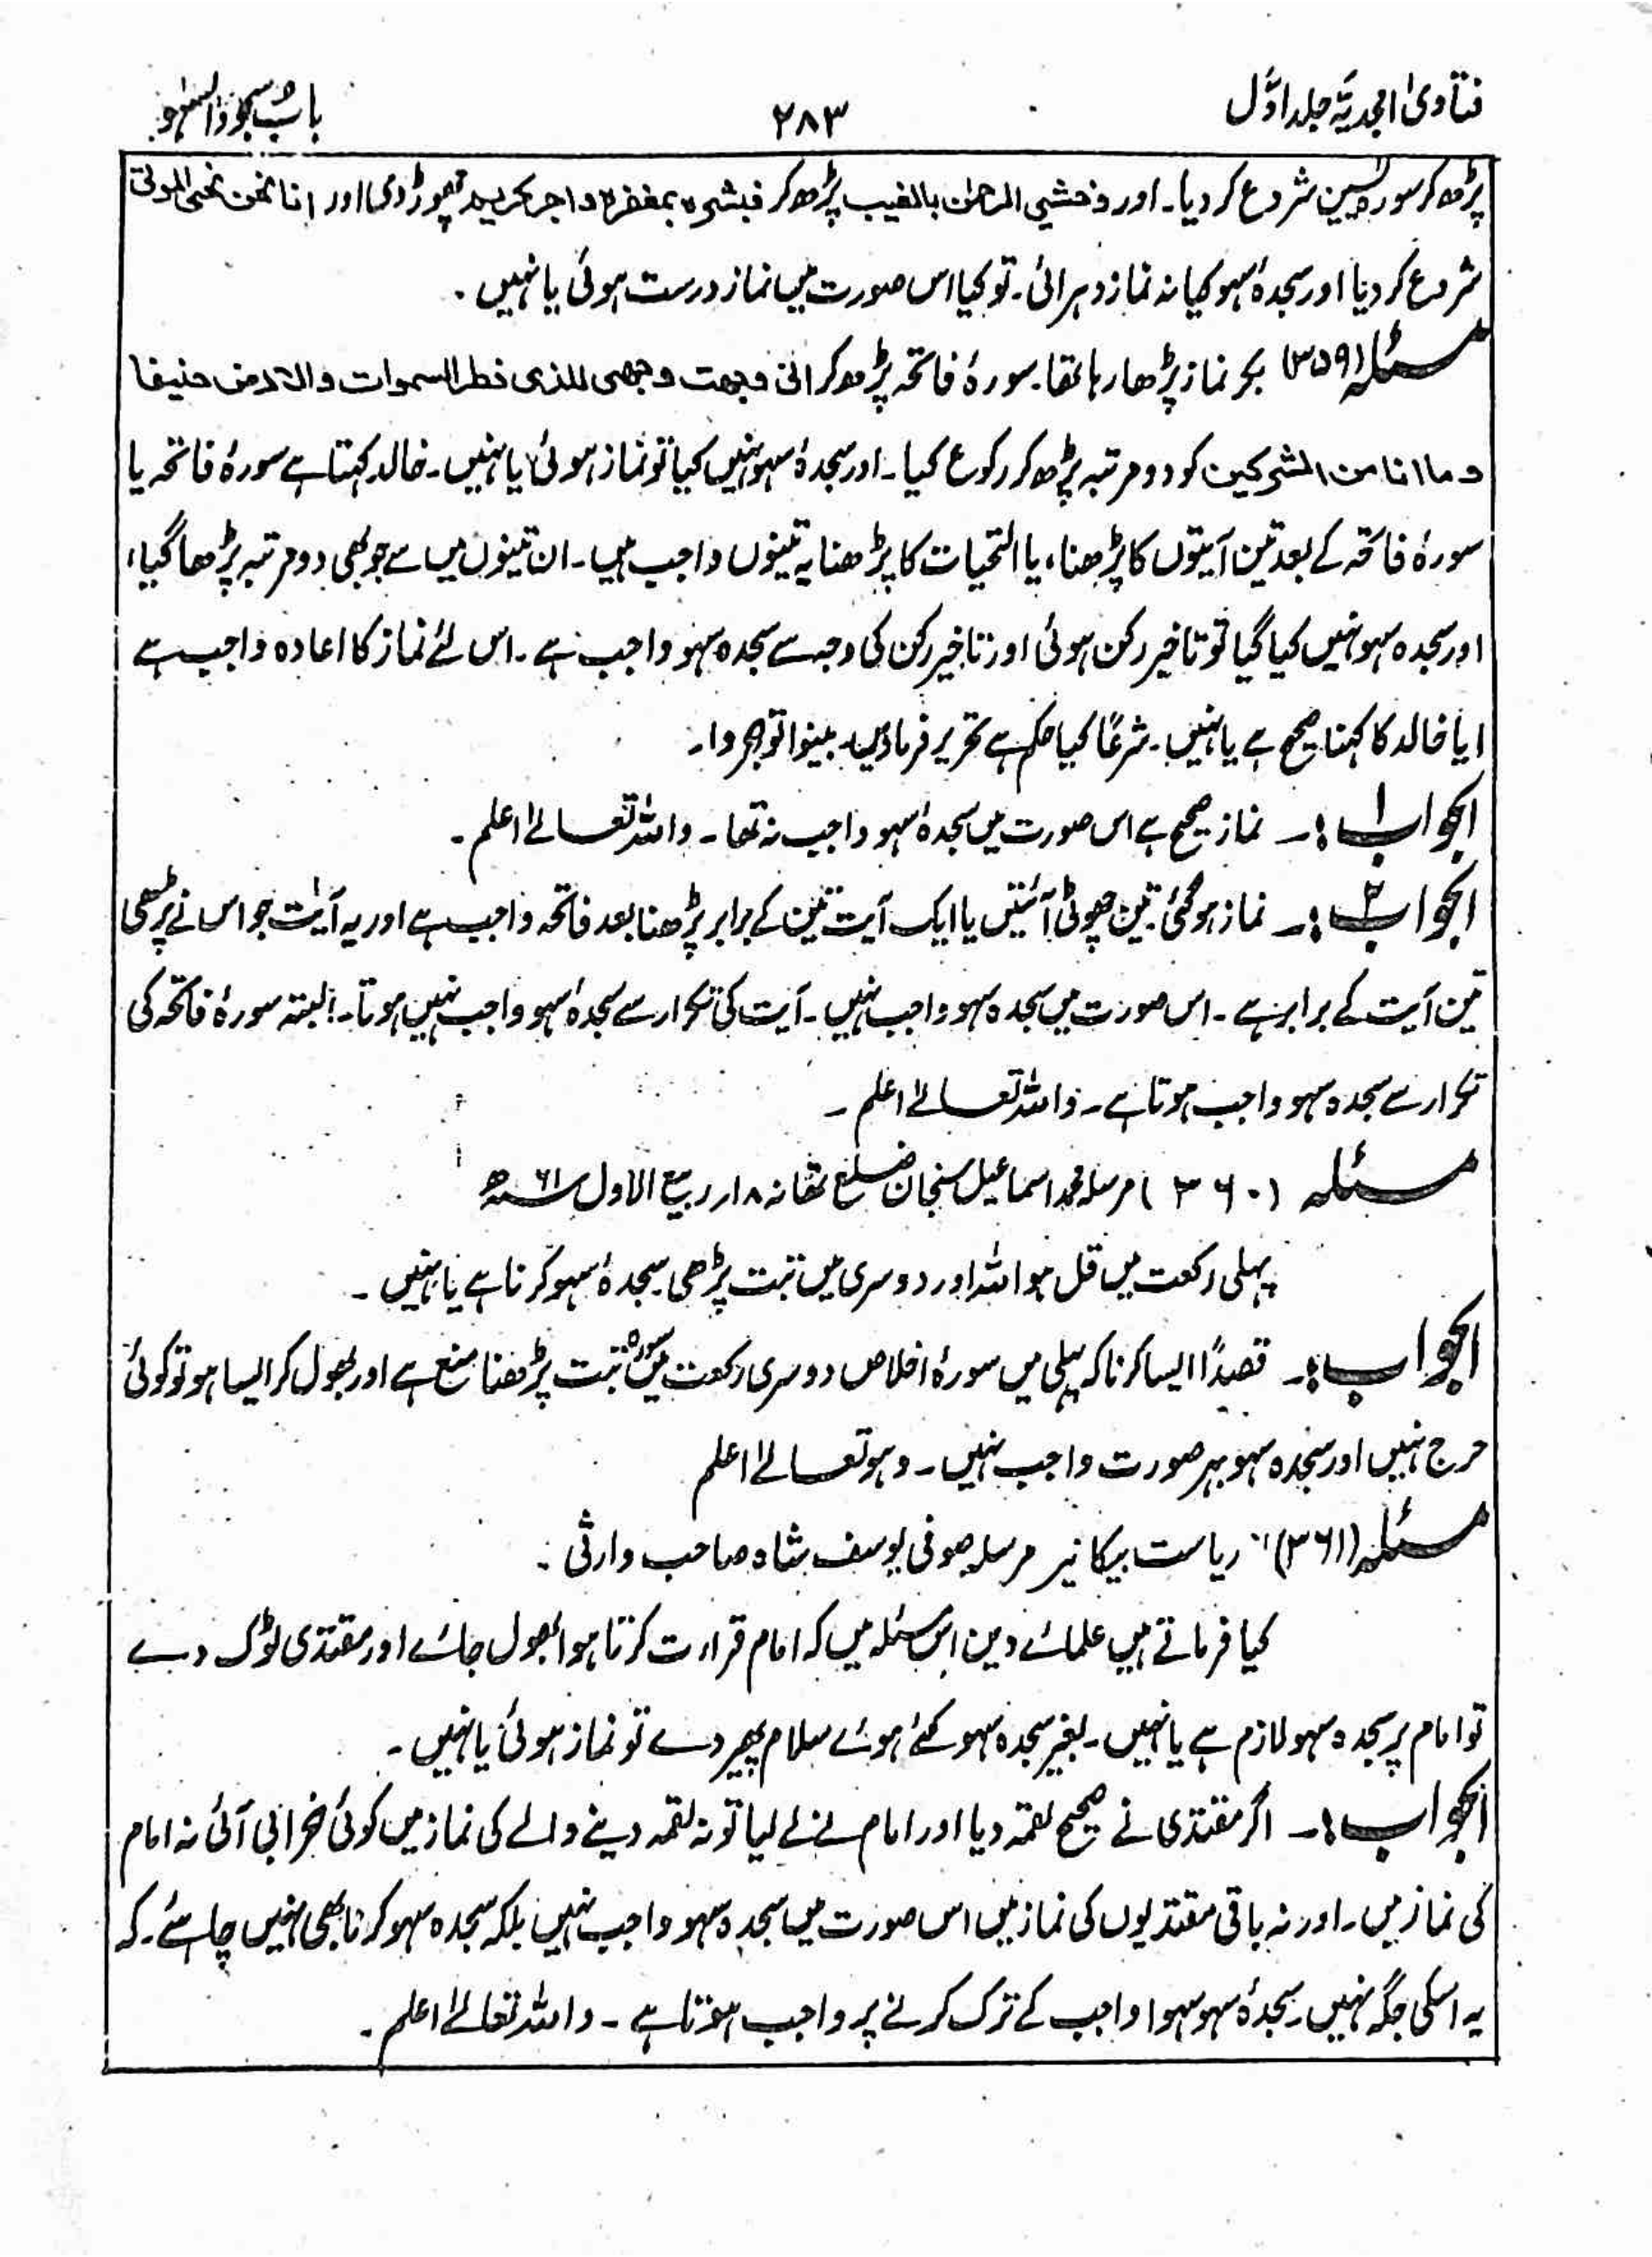 فتاویٰ امجدیہ جلد اوّل
۲۸۳
باب سجود السہو
پڑھ کر سورہ یٰسین شروع کر دیا۔ اور وخشی الرحمٰن بالغیب پڑھ کر فبشرہ بمغفرۃ واجر کریم چھوڑ دی اور انا نحن نحی الموتی
شروع کر دیا اور سجدۂ سہو کیا نہ نماز دہرائی۔ تو کیا اس صورت میں نماز درست ہوئی یا نہیں۔
مسئلہ (۳۵۹) بکر نماز پڑھا رہا تھا۔ سورۂ فاتحہ پڑھ کر انی وجھت وجھی للذی فطر السموات والارض حنیفا
وما انا من المشرکین کو دو مرتبہ پڑھ کر رکوع کیا۔ اور سجدۂ سہو نہیں کیا تو نماز ہوئی یا نہیں۔ خالد کہتا ہے سورۂ فاتحہ یا
سورۂ فاتحہ کے بعد تین آیتوں کا پڑھنا، یا التحیات کا پڑھنا یہ تینوں واجب ہیں۔ ان تینوں میں سے جو بھی دو مرتبہ پڑھا گیا،
اور سجدہ سہو نہیں کیا گیا تو تاخیر رکن ہوئی اور تاخیر رکن کی وجہ سے سجدہ سہو واجب ہے۔ اس لئے نماز کا اعادہ واجب ہے
ایا خالد کا کہنا صحیح ہے یا نہیں۔ شرعًا کیا حکم ہے تحریر فرمادیں۔ بینوا توجروا۔
الجواب ۱:۔ نماز صحیح ہے اس صورت میں سجدۂ سہو واجب نہ تھا۔ واللہ تعالےٰ اعلم۔
الجواب ۲:۔ نماز ہوگئی تین چھوٹی آئتیں یا ایک آیت تین کے برابر پڑھنا بعد فاتحہ واجب ہے اور یہ آیت جو اس نے پڑھی
تین آیت کے برابر ہے۔ اس صورت میں سجدہ سہو واجب نہیں۔ آیت کی تکرار سے سجدۂ سہو واجب نہیں ہوتا۔ البتہ سورۂ فاتحہ کی
تکرار سے سجدہ سہو واجب ہوتا ہے۔ واللہ تعالےٰ اعلم۔
مسئلہ (۳۶۰) مرسلہ محمد اسماعیل سنجان ضلع تھانہ ۱۸ ربیع الاول ۶۱ھ
پہلی رکعت میں قل ہو اللہ اور دوسری میں تبت پڑھی سجدۂ سہو کرنا ہے یا نہیں۔
الجواب:۔ قصدًا ایسا کرنا کہ پہلی میں سورۂ اخلاص دوسری رکعت میں سورۂ تبت پڑھنا منع ہے اور بھول کر ایسا ہو تو کوئی
حرج نہیں اور سجدہ سہو بہر صورت واجب نہیں۔ وہو تعالےٰ اعلم
مسئلہ (۳۶۱) ریاست بیکانیر مرسلہ صوفی یوسف شاہ صاحب وارثی۔
کیا فرماتے ہیں علمائے دین اس مسئلہ میں کہ امام قرارت کرتا ہوا بھول جائے اور مقتدی ٹوک دے
تو امام پر سجدہ سہو لازم ہے یا نہیں۔ بغیر سجدہ سہو کئے ہوئے سلام پھیر دے تو نماز ہوئی یا نہیں۔
الجواب:۔ اگر مقتدی نے صحیح لقمہ دیا اور امام نے لے لیا تو نہ لقمہ دینے والے کی نماز میں کوئی خرابی آئی نہ امام
کی نماز میں۔ اور نہ باقی مقتدیوں کی نماز میں اس صورت میں سجدہ سہو واجب نہیں بلکہ سجدہ سہو کرنا بھی نہیں چاہئے۔ کہ
یہ اسکی جگہ نہیں۔ سجدۂ سہو سہوا واجب کے ترک کرنے پر واجب ہوتا ہے۔ واللہ تعالےٰ اعلم۔